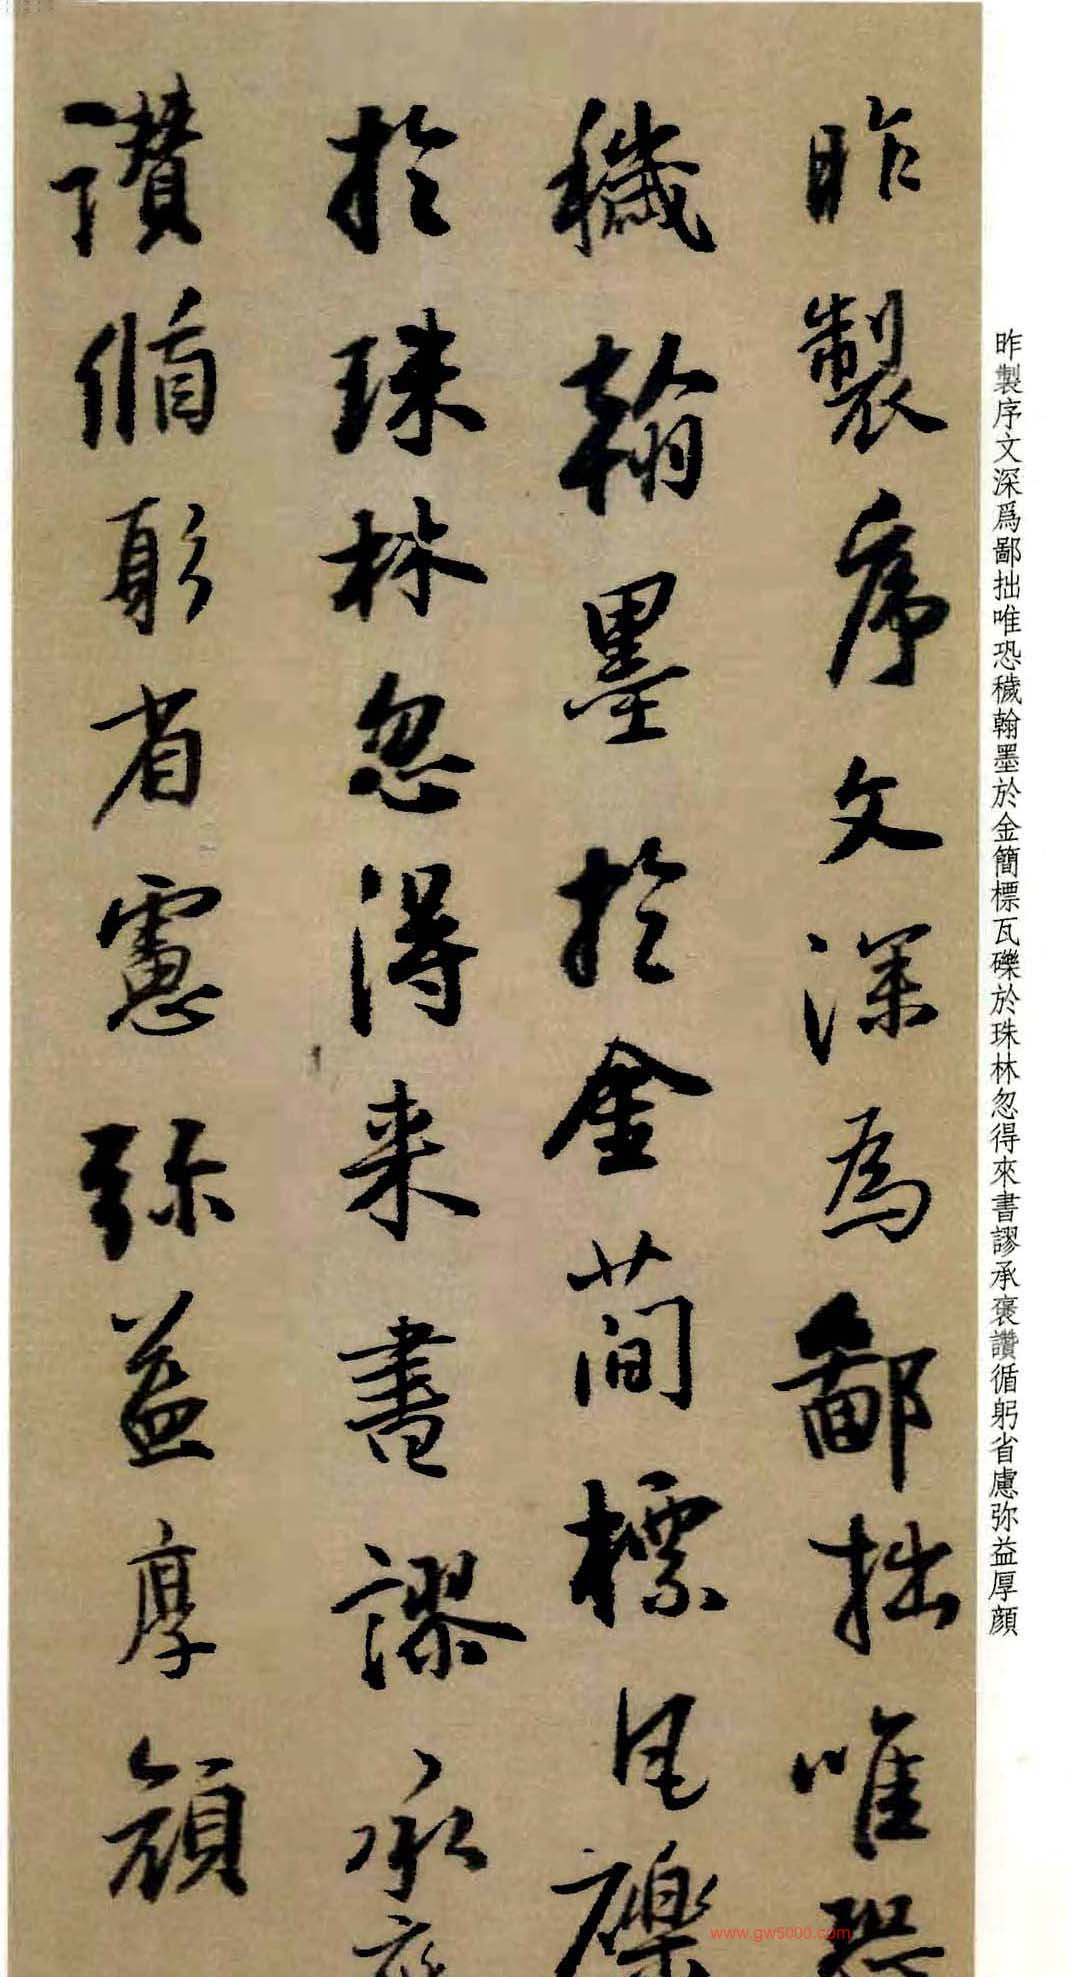 昨製序文深爲鄙拙唯恐
穢翰墨於金簡標瓦礫
於珠林忽得来書謬承褒
讚循躬省慮弥益厚顔
昨製序文深爲鄙拙唯恐穢翰墨於金簡標瓦礫於珠林忽得來書謬承褒讚循躬省慮弥益厚顔
www.gw5000.com